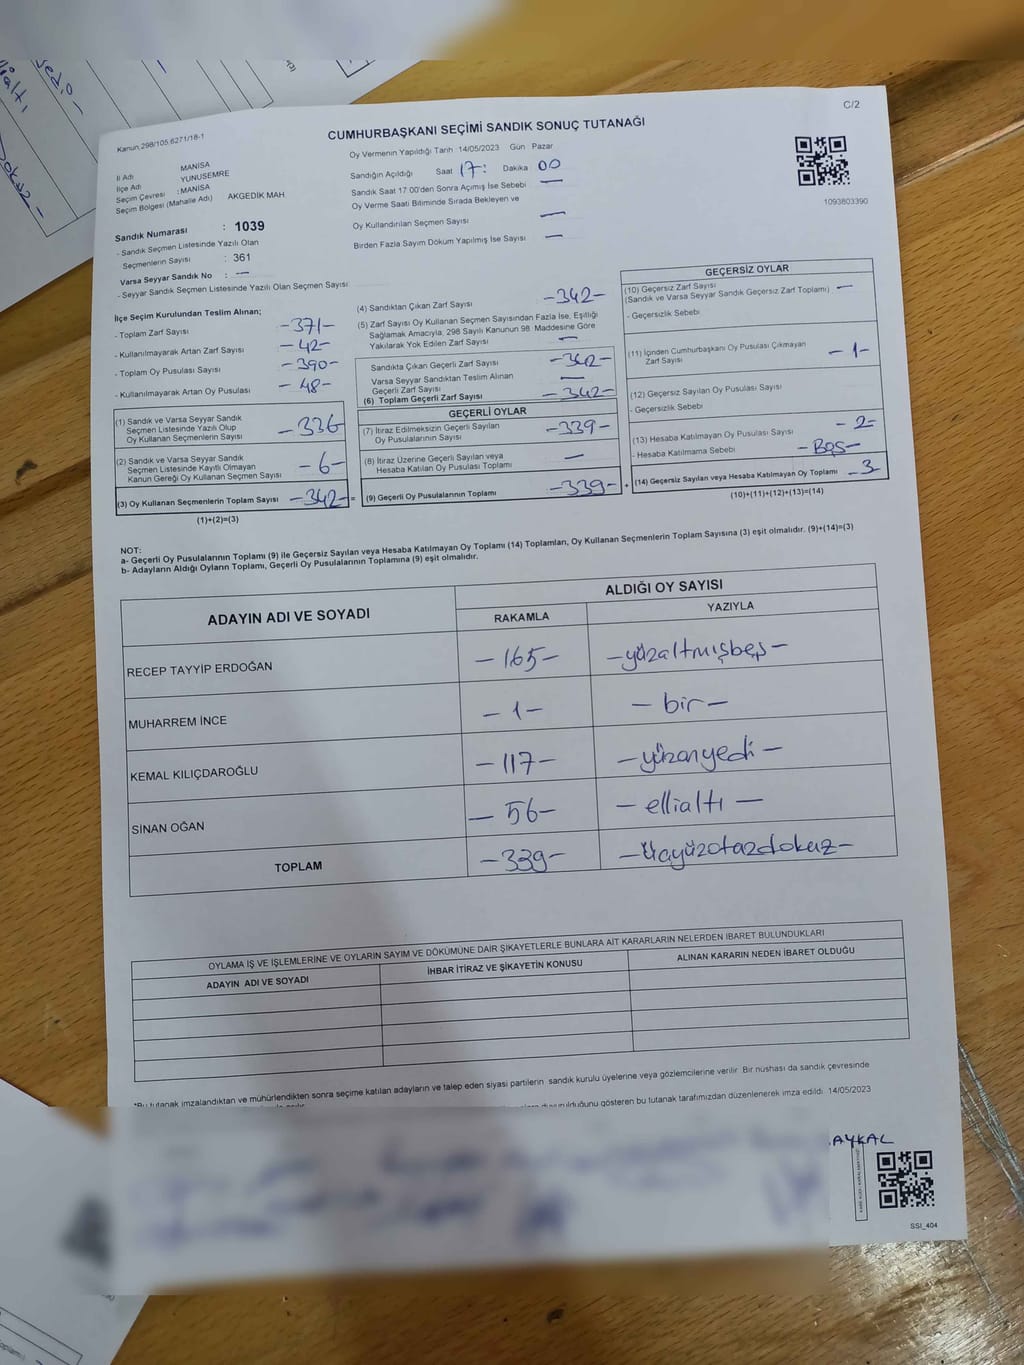 C/2
Kanun,298/105 6271/18-1
CUMHURBAŞKANI SEÇİMİ SANDIK SONUÇ TUTANAĞI
İl Adı MANİSA
İlçe Adı YUNUSEMRE
Seçim Çevresi : MANİSA
Seçim Bölgesi (Mahalle Adı) AKGEDİK MAH
Sandık Numarası : 1039
- Sandık Seçmen Listesinde Yazılı Olan
Seçmenlerin Sayısı : 361
Varsa Seyyar Sandık No : —
- Seyyar Sandık Seçmen Listesinde Yazılı Olan Seçmen Sayısı
Oy Vermenin Yapıldığı Tarih :14/05/2023 Gün Pazar
Sandığın Açıldığı Saat 17: Dakika 00
Sandık Saat 17:00'den Sonra Açımış İse Sebebi —
Oy Verme Saati Bitiminde Sırada Bekleyen ve
Oy Kullandırılan Seçmen Sayısı —
Birden Fazla Sayım Döküm Yapılmış İse Sayısı —
1093803390
İlçe Seçim Kurulundan Teslim Alınan;
- Toplam Zarf Sayısı -371-
- Kullanılmayarak Artan Zarf Sayısı -42-
- Toplam Oy Pusulası Sayısı -390-
- Kullanılmayarak Artan Oy Pusulası -48-
(1) Sandık ve Varsa Seyyar Sandık
Seçmen Listesinde Yazılı Olup
Oy Kullanan Seçmenlerin Sayısı -336
(2) Sandık ve Varsa Seyyar Sandık
Seçmen Listesinde Kayıtlı Olmayan
Kanun Gereği Oy Kullanan Seçmen Sayısı -6-
(3) Oy Kullanan Seçmenlerin Toplam Sayısı -342- =
(1)+(2)=(3)
(4) Sandıktan Çıkan Zarf Sayısı -342-
(5) Zarf Sayısı Oy Kullanan Seçmen Sayısından Fazla İse, Eşitliği
Sağlamak Amacıyla, 298 Sayılı Kanunun 98. Maddesine Göre
Yakılarak Yok Edilen Zarf Sayısı —
Sandıkta Çıkan Geçerli Zarf Sayısı -342-
Varsa Seyyar Sandıktan Teslim Alınan
Geçerli Zarf Sayısı —
(6) Toplam Geçerli Zarf Sayısı -342-
GEÇERLİ OYLAR
(7) İtiraz Edilmeksizin Geçerli Sayılan
Oy Pusulalarının Sayısı -339-
(8) İtiraz Üzerine Geçerli Sayılan veya
Hesaba Katılan Oy Pusulası Toplamı —
(9) Geçerli Oy Pusulalarının Toplamı -339- +
GEÇERSİZ OYLAR
(10) Geçersiz Zarf Sayısı —
(Sandık ve Varsa Seyyar Sandık Geçersiz Zarf Toplamı)
- Geçersizlik Sebebi
(11) İçinden Cumhurbaşkanı Oy Pusulası Çıkmayan
Zarf Sayısı -1-
(12) Geçersiz Sayılan Oy Pusulası Sayısı
- Geçersizlik Sebebi
(13) Hesaba Katılmayan Oy Pusulası Sayısı -2-
- Hesaba Katılmama Sebebi -BOŞ-
(14) Geçersiz Sayılan veya Hesaba Katılmayan Oy Toplamı -3-
(10)+(11)+(12)+(13)=(14)
NOT:
a- Geçerli Oy Pusulalarının Toplamı (9) ile Geçersiz Sayılan veya Hesaba Katılmayan Oy Toplamı (14) Toplamları, Oy Kullanan Seçmenlerin Toplam Sayısına (3) eşit olmalıdır. (9)+(14)=(3)
b- Adayların Aldığı Oyların Toplamı, Geçerli Oy Pusulalarının Toplamına (9) eşit olmalıdır.
ADAYIN ADI VE SOYADI ALDIĞI OY SAYISI
RAKAMLA YAZIYLA
RECEP TAYYİP ERDOĞAN -165- -yüzaltmışbeş-
MUHARREM İNCE -1- -bir-
KEMAL KILIÇDAROĞLU -117- -yüzonyedi-
SİNAN OĞAN -56- -ellialtı-
TOPLAM -339- -üçyüzotuzdokuz-
OYLAMA İŞ VE İŞLEMLERİNE VE OYLARIN SAYIM VE DÖKÜMÜNE DAİR ŞİKAYETLERLE BUNLARA AİT KARARLARIN NELERDEN İBARET BULUNDUKLARI
ADAYIN ADI VE SOYADI İHBAR İTİRAZ VE ŞİKAYETİN KONUSU ALINAN KARARIN NEDEN İBARET OLDUĞU
*Bu tutanak imzalandıktan ve mühürlendikten sonra seçime katılan adayların ve talep eden siyasi partilerin sandık kurulu üyelerine veya gözlemcilerine verilir. Bir nüshası da sandık çevresinde
duyurulduğunu gösteren bu tutanak tarafımızdan düzenlenerek imza edildi. 14/05/2023
AYKAL
SSİ_404